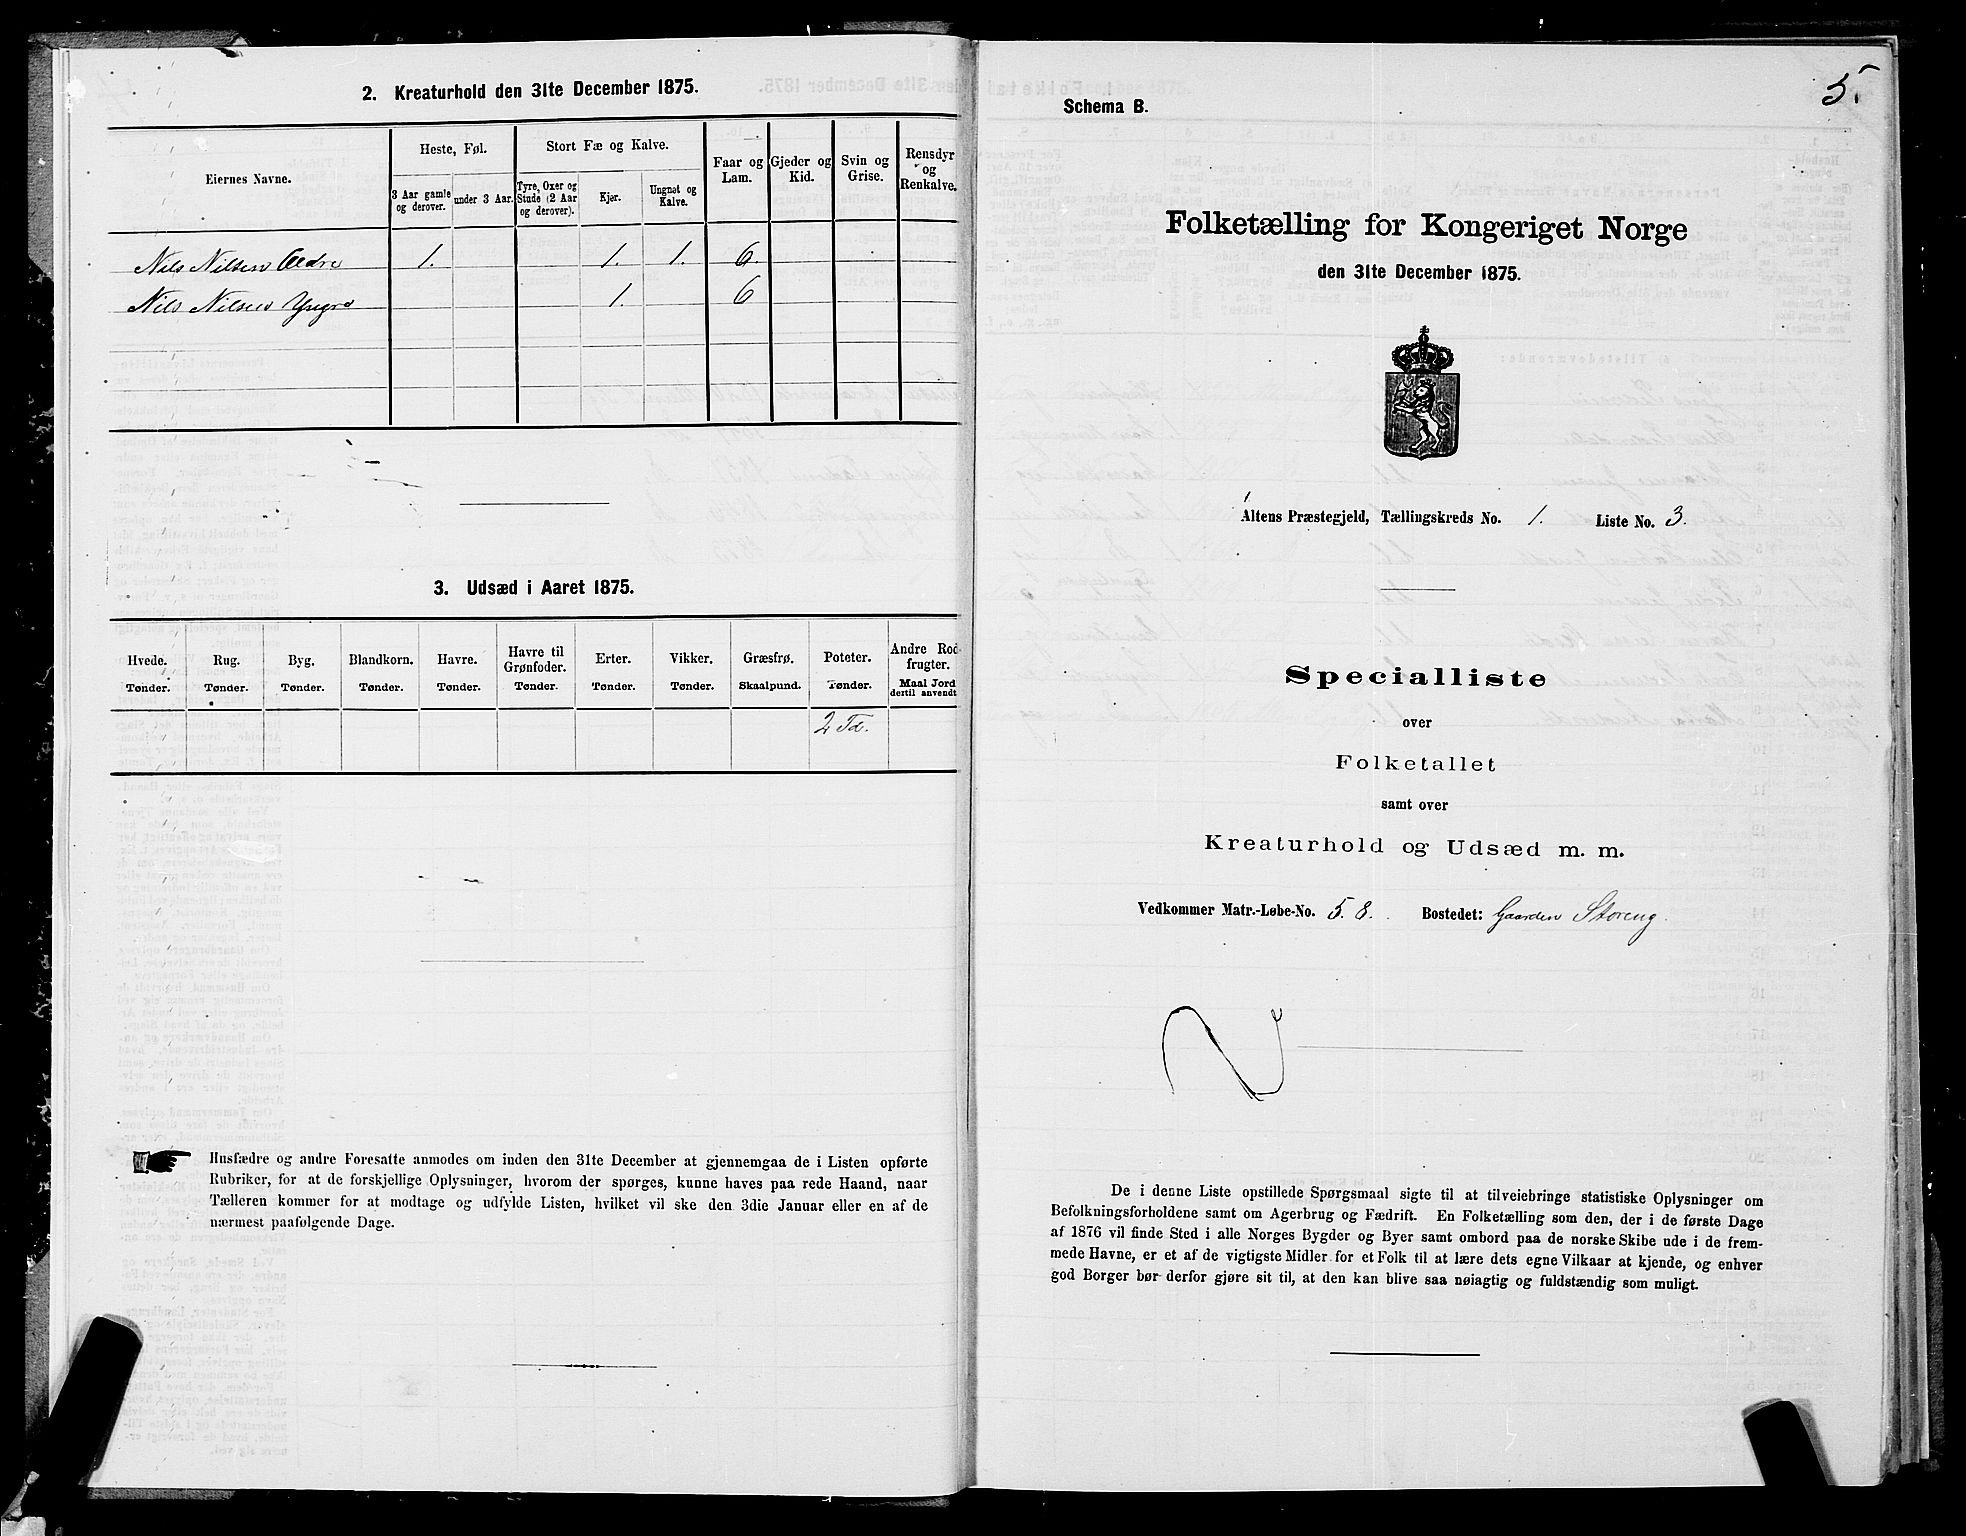 2. Kreaturhold den 31te December 1875.
Eiernes Navne.
Heste, Føl.
Stort Fæ og Kalve.
Faar og Lam.
Gjeder og Kid.
Svin og Grise.
Rensdyr og Renkalve.
3 Aar gamle og derover.
under 3 Aar.
Tyre, Oxer og Stude (2 Aar og derover).
Kjør.
Ungnøt og Kalve.
Nils Nilsen Ældre 1. 1. 1. 6.
Nils Nilsen Yngre 1. 6
3. Udsæd i Aaret 1875.
Hvede. Rug. Byg. Blandkorn. Havre. Havre til Grønfoder. Erter. Vikker. Græsfrø. Poteter. Andre Rodfrugter.
Tønder. Tønder. Tønder. Tønder. Tønder. Tønder. Tønder. Tønder. Skaalpund. Tønder. Maal Jord dertil anvendt
2 Td.
Husfædre og andre Foresatte anmodes om inden den 31te December at gjennemgaa de i Listen opførte
Rubriker, for at de forskjellige Oplysninger, hvorom der spørges, kunne haves paa rede Haand, naar
Tælleren kommer for at modtage og udfylde Listen, hvilket vil ske den 3die Januar eller en af de
nærmest paafølgende Dage.
5.
Schema B.
Folketælling for Kongeriget Norge
den 31te December 1875.
Altens Præstegjeld, Tællingskreds No. 1. Liste No. 3.
Specialliste
over
Folketallet
samt over
Kreaturhold og Udsæd m. m.
Vedkommer Matr.-Løbe-No. 5. 8. Bostedet: Gaarden Storeng.
De i denne Liste opstillede Spørgsmaal sigte til at tilveiebringe statistiske Oplysninger om
Befolkningsforholdene samt om Agerbrug og Fædrift. En Folketælling som den, der i de første Dage
af 1876 vil finde Sted i alle Norges Bygder og Byer samt ombord paa de norske Skibe ude i de frem-
mede Havne, er et af de vigtigste Midler for et Folk til at lære dets egne Vilkaar at kjende, og enhver
god Borger bør derfor gjøre sit til, at den kan blive saa nøiagtig og fuldstændig som muligt.